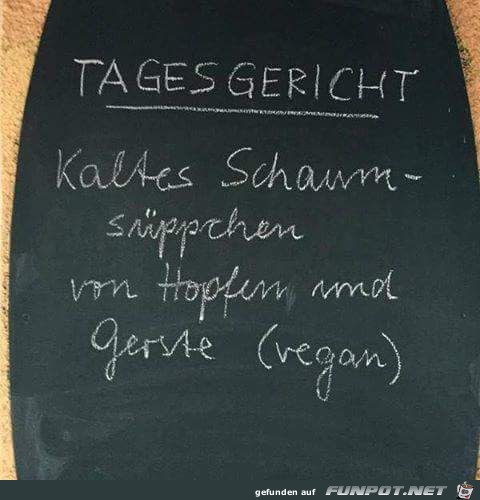 TAGESGERICHT
Kaltes Schaum-
süppchen
von Hopfen und
Gerste (vegan)
gefunden auf FUNPOT.NET